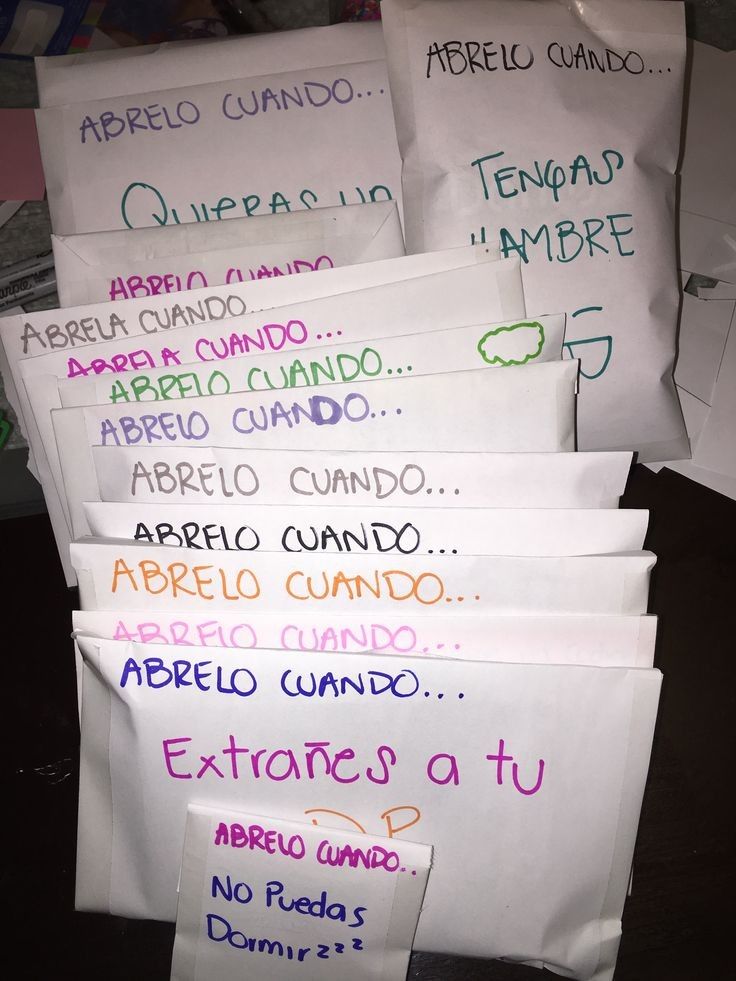 ABRELO CUANDO...
QUIERAS UN
ABRELO CUANDO...
TENGAS
HAMBRE
:B
ABRELO CUANDO
ABRELA CUANDO...
ABRELA CUANDO...
ABRELO CUANDO...
ABRELO CUANDO...
ABRELO CUANDO...
ABRELO CUANDO...
ABRELO CUANDO...
ABRELO CUANDO...
ABRELO CUANDO...
Extrañes a tu
ABRELO CUANDO..
No Puedas
Dormir zzz